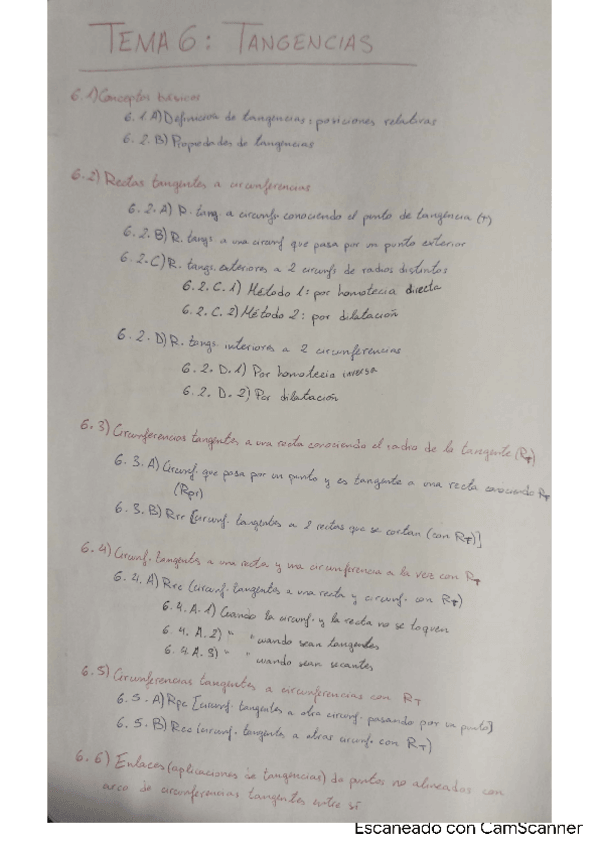 TEMA 6: TANGENCIAS
6.1) Conceptos básicos
6.1.A) Definición de tangencias: posiciones relativas
6.2.B) Propiedades de tangencias
6.2) Rectas tangentes a circunferencias
6.2.A) R. tang. a circunf. conociendo el punto de tangencia (T)
6.2.B) R. tangs. a una circunf que pasa por un punto exterior
6.2.C) R. tangs. exteriores a 2 circunfs de radios distintos
6.2.C.1) Método 1: por homotecia directa
6.2.C.2) Método 2: por dilatación
6.2.D) R. tangs. interiores a 2 circunferencias
6.2.D.1) Por homotecia inversa
6.2.D.2) Por dilatación
6.3) Circunferencias tangentes a una recta conociendo el radio de la tangente (RT)
6.3.A) Circunf. que pasa por un punto y es tangente a una recta conociendo RT
(Rpr)
6.3.B) Rrr [circunf. tangentes a 2 rectas que se cortan (con RT)]
6.4) Circunf. tangentes a una recta y una circunferencia a la vez con RT
6.4.A) Rrc (circunf. tangentes a una recta y circunf. con RT)
6.4.A.1) Cuando la circunf. y la recta no se toquen
6.4.A.2) " " cuando sean tangentes
6.4.A.3) " " cuando sean secantes
6.5) Circunferencias tangentes a circunferencias con RT
6.5.A) Rpc [circunf. tangentes a otra circunf. pasando por un punto]
6.5.B) Rcc (circunf. tangentes a otras circunf. con RT)
6.6) Enlaces (aplicaciones de tangencias) de puntos no alineados con
arco de circunferencias tangentes entre sí
Escaneado con CamScanner